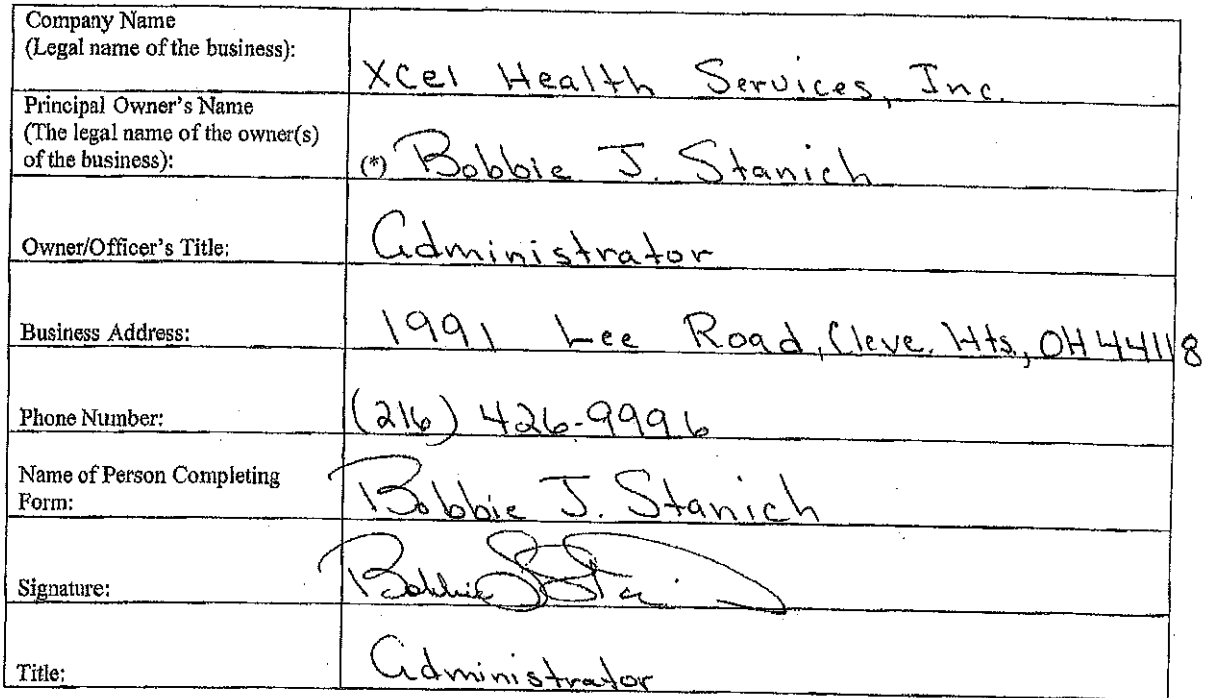 Company Name
(Legal name of the business):
Xcel Health Services, Inc.
Principal Owner's Name
(The legal name of the owner(s)
of the business):
(*) Bobbie J. Stanich
Owner/Officer's Title:
Administrator
Business Address:
1991 Lee Road, Cleve. Hts., OH 44118
Phone Number:
(216) 426-9996
Name of Person Completing
Form:
Bobbie J. Stanich
Signature:
Bobbie J Stani
Title:
Administrator